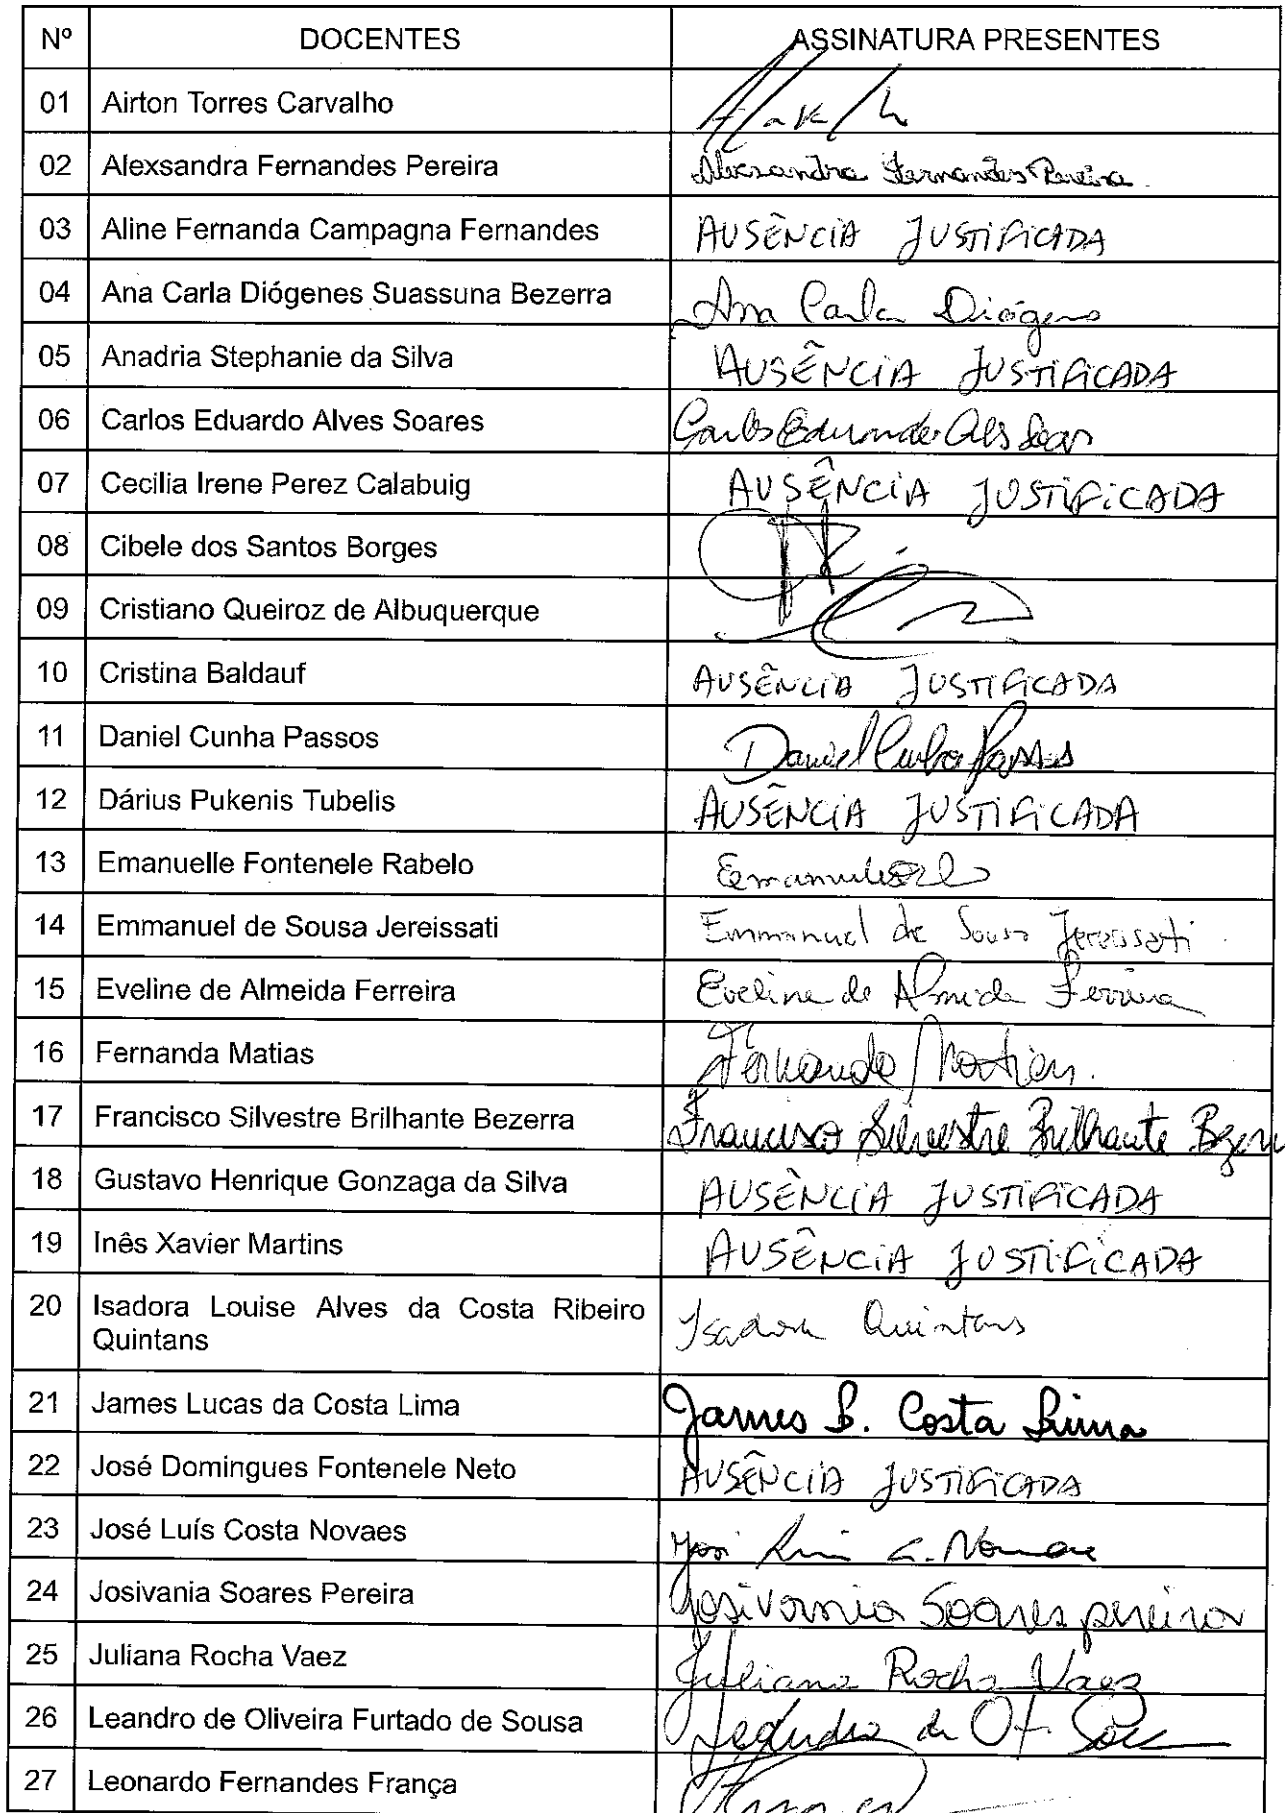 Nº DOCENTES ASSINATURA PRESENTES
01 Airton Torres Carvalho
02 Alexsandra Fernandes Pereira Alexsandra Fernandes Pereira
03 Aline Fernanda Campagna Fernandes AUSÊNCIA JUSTIFICADA
04 Ana Carla Diógenes Suassuna Bezerra Ana Carla Diógenes
05 Anadria Stephanie da Silva AUSÊNCIA JUSTIFICADA
06 Carlos Eduardo Alves Soares Carlos Eduardo
07 Cecilia Irene Perez Calabuig AUSÊNCIA JUSTIFICADA
08 Cibele dos Santos Borges
09 Cristiano Queiroz de Albuquerque
10 Cristina Baldauf AUSÊNCIA JUSTIFICADA
11 Daniel Cunha Passos Daniel Cunha Passos
12 Dárius Pukenis Tubelis AUSÊNCIA JUSTIFICADA
13 Emanuelle Fontenele Rabelo
14 Emmanuel de Sousa Jereissati Emmanuel de Sousa Jereissati
15 Eveline de Almeida Ferreira Eveline de Almeida Ferreira
16 Fernanda Matias Fernanda Matias
17 Francisco Silvestre Brilhante Bezerra Francisco Silvestre Brilhante
18 Gustavo Henrique Gonzaga da Silva AUSÊNCIA JUSTIFICADA
19 Inês Xavier Martins AUSÊNCIA JUSTIFICADA
20 Isadora Louise Alves da Costa Ribeiro Isadora Quintans
Quintans
21 James Lucas da Costa Lima James L. Costa Lima
22 José Domingues Fontenele Neto AUSÊNCIA JUSTIFICADA
23 José Luís Costa Novaes
24 Josivania Soares Pereira Josivania Soares pereira
25 Juliana Rocha Vaez Juliana Rocha Vaez
26 Leandro de Oliveira Furtado de Sousa Leandro de
27 Leonardo Fernandes França